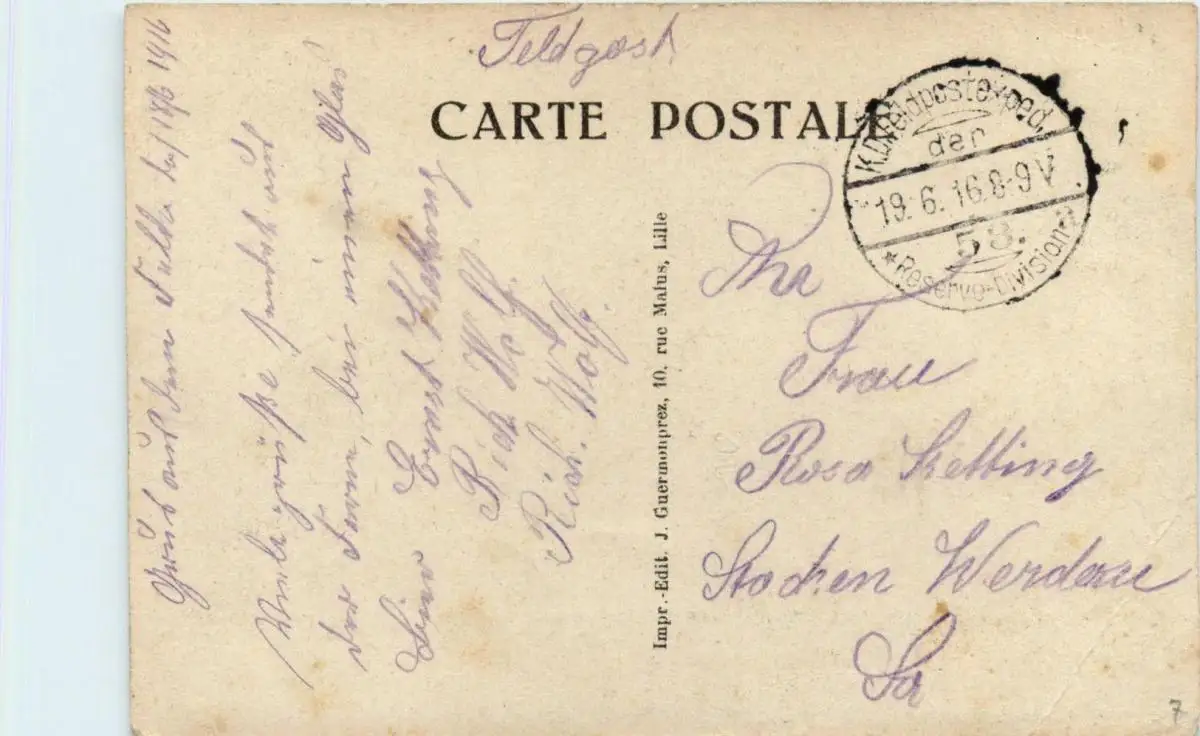 Feldpost
CARTE POSTALE
K.D. Feldpostexped.
der
19.6.16.8-9V.
53.
* Reserve-Division a
Gruß aus dem Felde 18/6 1916
Viele Grüße sendet aus
der Ferne, bei einem Glas
Bier Ernst
Rich. Wolf.
Rich. Wolf.
Impr.-Edit. J. Guermonprez, 10, rue Malus, Lille
An
Frau
Rosa Ketting
Stocken Werdau
Sa
7